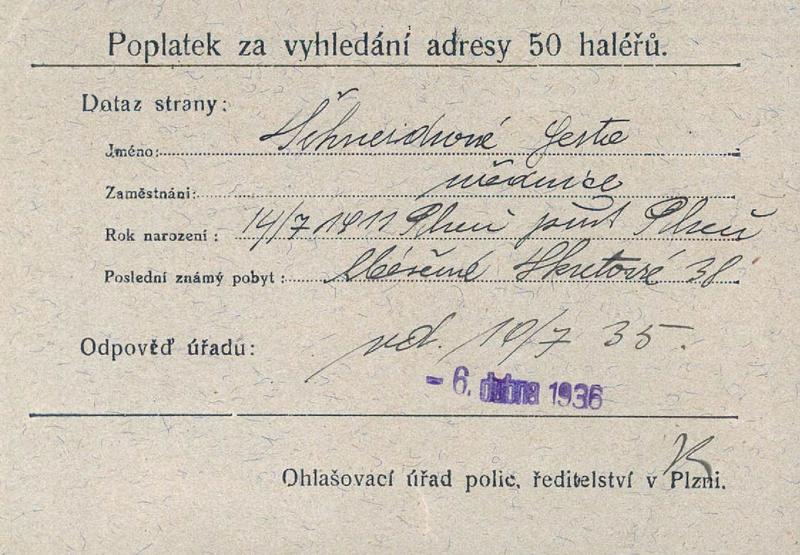 Poplatek za vyhledání adresy 50 haléřů.
Dotaz strany:
Jméno: Gerta
Zaměstnání: úřednice
Rok narození: 14/7 1911 Plzeň přísl. Plzeň
Poslední známý pobyt: 38
Odpověď úřadu: od. 10/7 35.
- 6. dubna 1936
Ohlašovací úřad polic. ředitelství v Plzni.